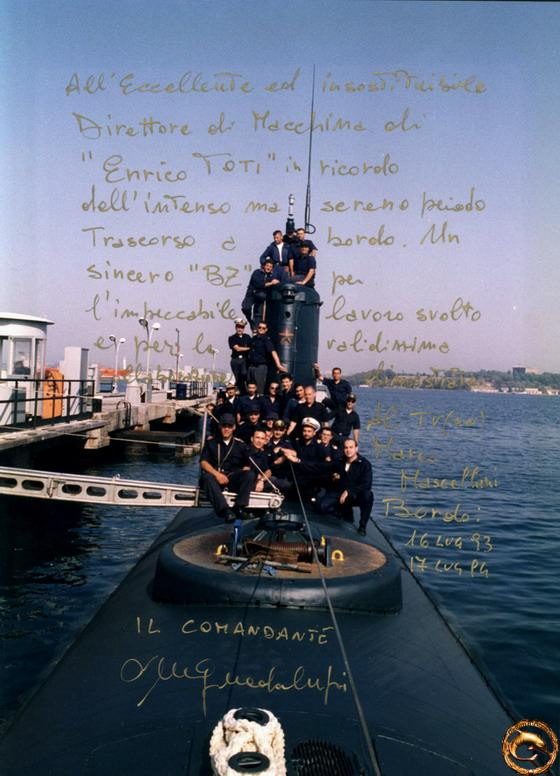 All'Eccellente ed insostituibile
Direttore di Macchina di
"Enrico TOTI" in ricordo
dell'intenso ma sereno periodo
Trascorso a bordo. Un
sincero "BZ" per
l'impeccabile lavoro svolto
e per la validissima
Al TV(GN)
Marco
Mascellini
Bordo:
16 LUG 93
17 LUG 94
IL COMANDANTE
Guadalupi